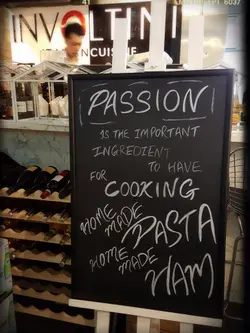 INVOLTINI
CUISINE
PASSION
IS THE IMPORTANT
INGREDIENT
TO HAVE
FOR
COOKING
HOME
MADE
PASTA
HOME
MADE
HAM